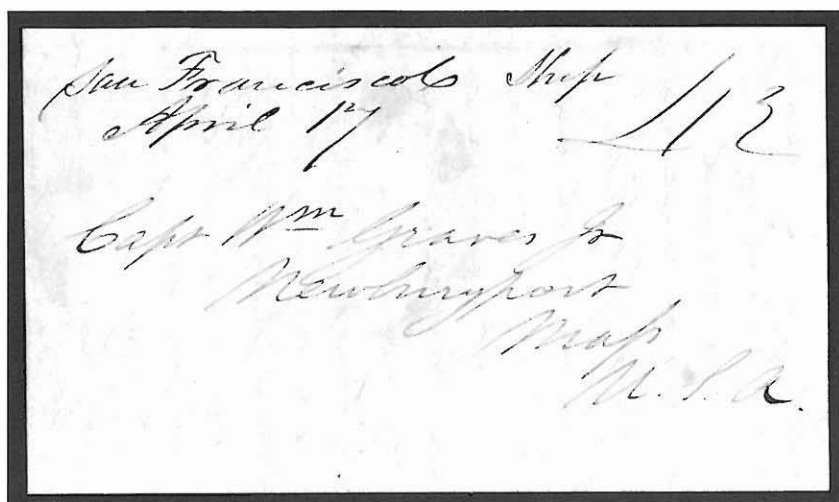 San Francisco Ship 42
April 17
Capt Wm Graves Jr
Newburyport
Mass
U.S.A.